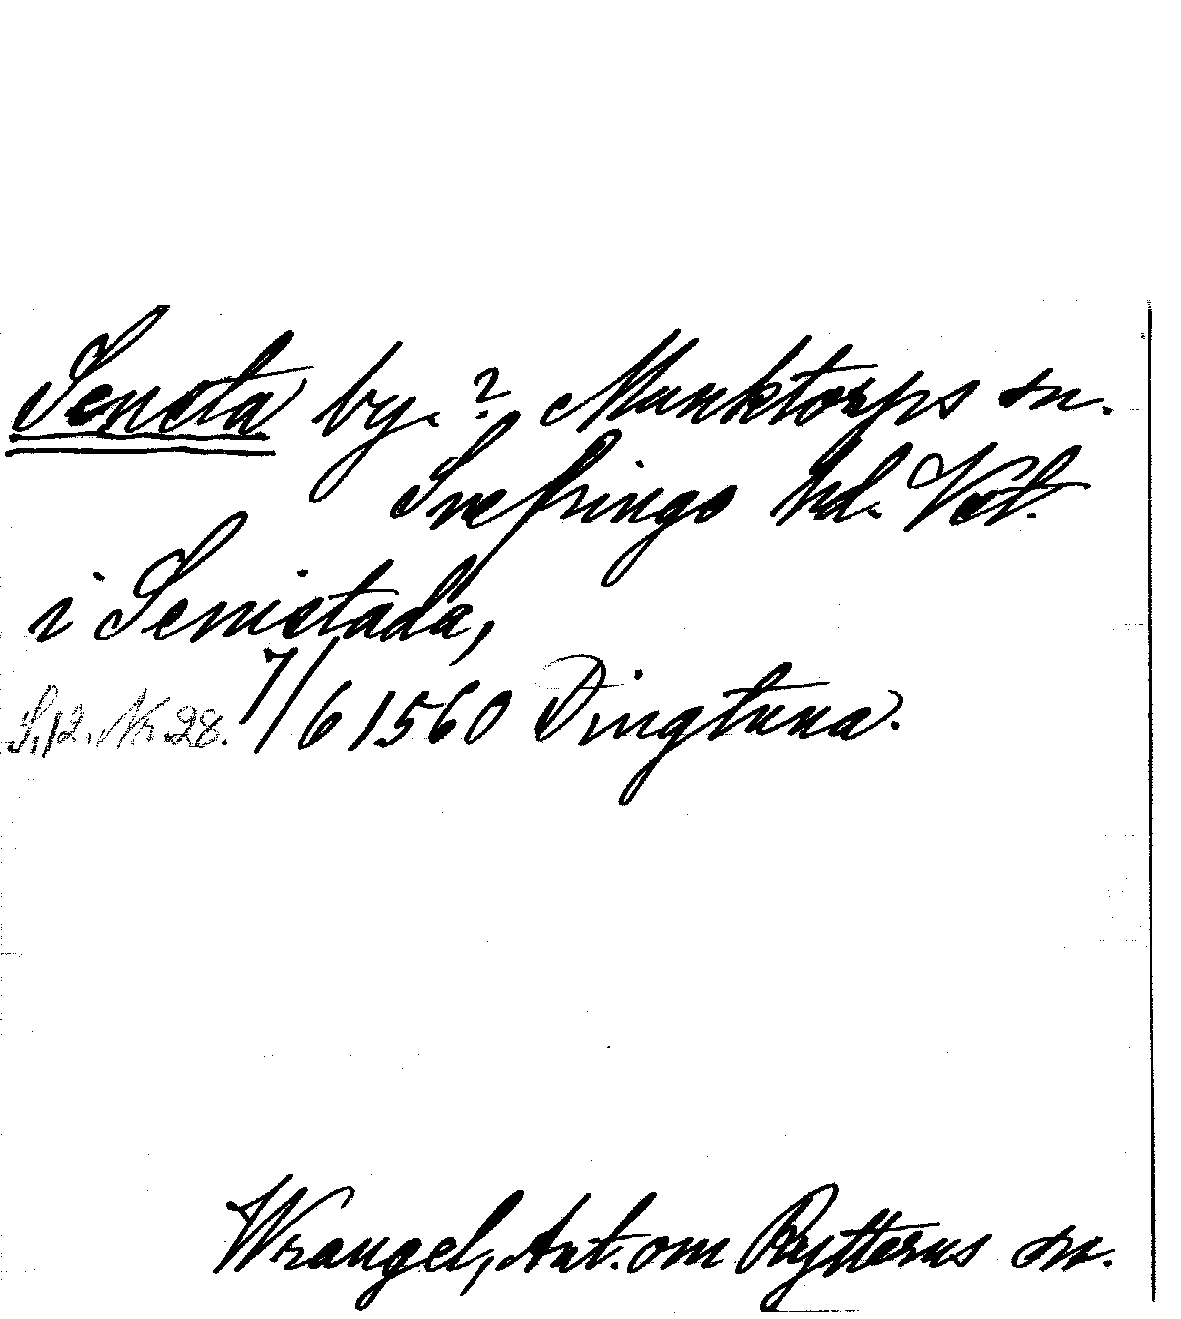 Sensta by.? Munktorps sn.
Snefringe hd. Vst.
i Senistada,
S. 12. Nr 28. 7/6 1560 Dingtuna.
Wrangel, Ant. om Rytterns sn.